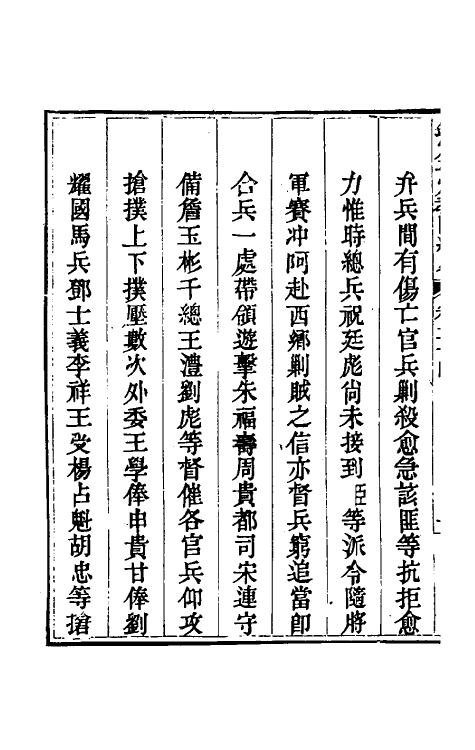 弁兵間有傷亡官兵剿殺愈急該匪等抗拒愈
力惟時總兵祝廷彪尙未接到臣等派令隨將
軍賽冲阿赴西鄉剿賊之信亦督兵窮追當卽
合兵一處帶領遊擊朱福壽周貴都司宋連守
備詹玉彬千總王澧劉彪等督催各官兵仰攻
搶撲上下撲壓數次外委王學俸申貴甘俸劉
耀國馬兵鄧士義李祥王受楊占魁胡忠等搶